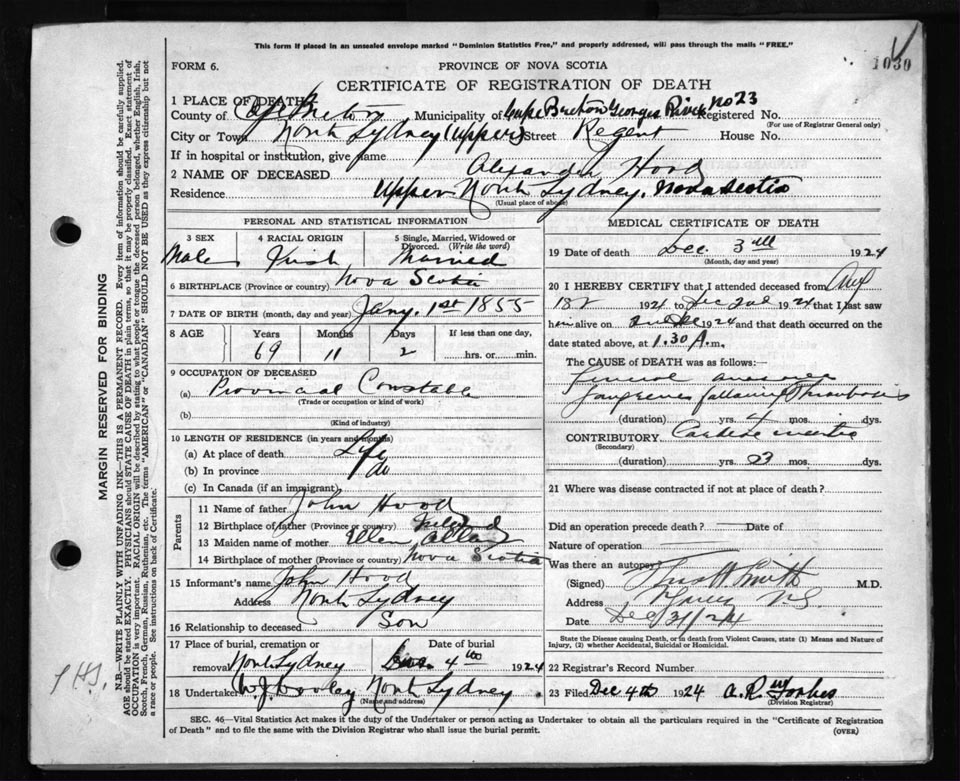 This form if placed in an unsealed envelope marked "Dominion Statistics Free," and properly addressed, will pass through the mails "FREE."
1030
FORM 6.
PROVINCE OF NOVA SCOTIA
CERTIFICATE OF REGISTRATION OF DEATH
1 PLACE OF DEATH
County of Cape Breton Municipality of Cape Breton Georges River No 23 Registered No.
(For use of Registrar General only)
City or Town North Sydney (upper) Street Regent House No.
If in hospital or institution, give name
2 NAME OF DECEASED Alexander Hood
Residence Upper North Sydney, Nova Scotia
(Usual place of abode)
PERSONAL AND STATISTICAL INFORMATION
3 SEX 4 RACIAL ORIGIN 5 Single, Married, Widowed or Divorced. (Write the word)
Male Irish Married
6 BIRTHPLACE (Province or country) Nova Scotia
7 DATE OF BIRTH (month, day and year) Jany. 1st 1855
8 AGE Years Months Days If less than one day,
69 11 2 hrs. or min.
9 OCCUPATION OF DECEASED
(a) Provincial Constable
(Trade or occupation or kind of work)
(b)
(Kind of industry)
10 LENGTH OF RESIDENCE (in years and months)
(a) At place of death Life
(b) In province do
(c) In Canada (if an immigrant)
Parents
11 Name of father John Hood
12 Birthplace of father (Province or country)
13 Maiden name of mother Ellen
14 Birthplace of mother (Province or country) Nova Scotia
15 Informant's name John Hood
Address North Sydney
16 Relationship to deceased Son
17 Place of burial, cremation or removal North Sydney Date of burial Dec. 4th 1924
18 Undertaker W. J. Dooley North Sydney
(Name and address)
MEDICAL CERTIFICATE OF DEATH
19 Date of death Dec 3rd 1924
(Month, day and year)
20 I HEREBY CERTIFY that I attended deceased from
1924 to 1924 that I last saw
h alive on 1924 and that death occurred on the
date stated above, at 1.30 A.m.
The CAUSE of DEATH was as follows:
Thrombosis
(duration) yrs. mos. dys.
CONTRIBUTORY
(Secondary)
(duration) yrs. mos. dys.
21 Where was disease contracted if not at place of death?
Did an operation precede death? Date of
Nature of operation
Was there an autopsy?
(Signed) Smith M.D.
Address
Date Dec 3/24
State the Disease causing Death, or in death from Violent Causes, state (1) Means and Nature of Injury, (2) whether Accidental, Suicidal or Homicidal.
22 Registrar's Record Number
23 Filed Dec 4th 1924 A. R. Forbes
(Division Registrar)
SEC. 46—Vital Statistics Act makes it the duty of the Undertaker or person acting as Undertaker to obtain all the particulars required in the "Certificate of Registration
of Death" and to file the same with the Division Registrar who shall issue the burial permit.
(OVER)
MARGIN RESERVED FOR BINDING
N.B.—WRITE PLAINLY WITH UNFADING INK—THIS IS A PERMANENT RECORD. Every item of information should be carefully supplied.
AGE should be stated EXACTLY. PHYSICIANS should STATE CAUSE OF DEATH in plain terms, so that it may be properly classified. Exact statement of
OCCUPATION is very important. RACIAL ORIGIN will be described by stating to what people or tongue the deceased person belonged, whether English, Irish,
Scotch, French, German, Russian, Ruthenian, etc. The terms "AMERICAN" or "CANADIAN" SHOULD NOT BE USED as they express citizenship but not
a race or people. See instructions on back of Certificate.